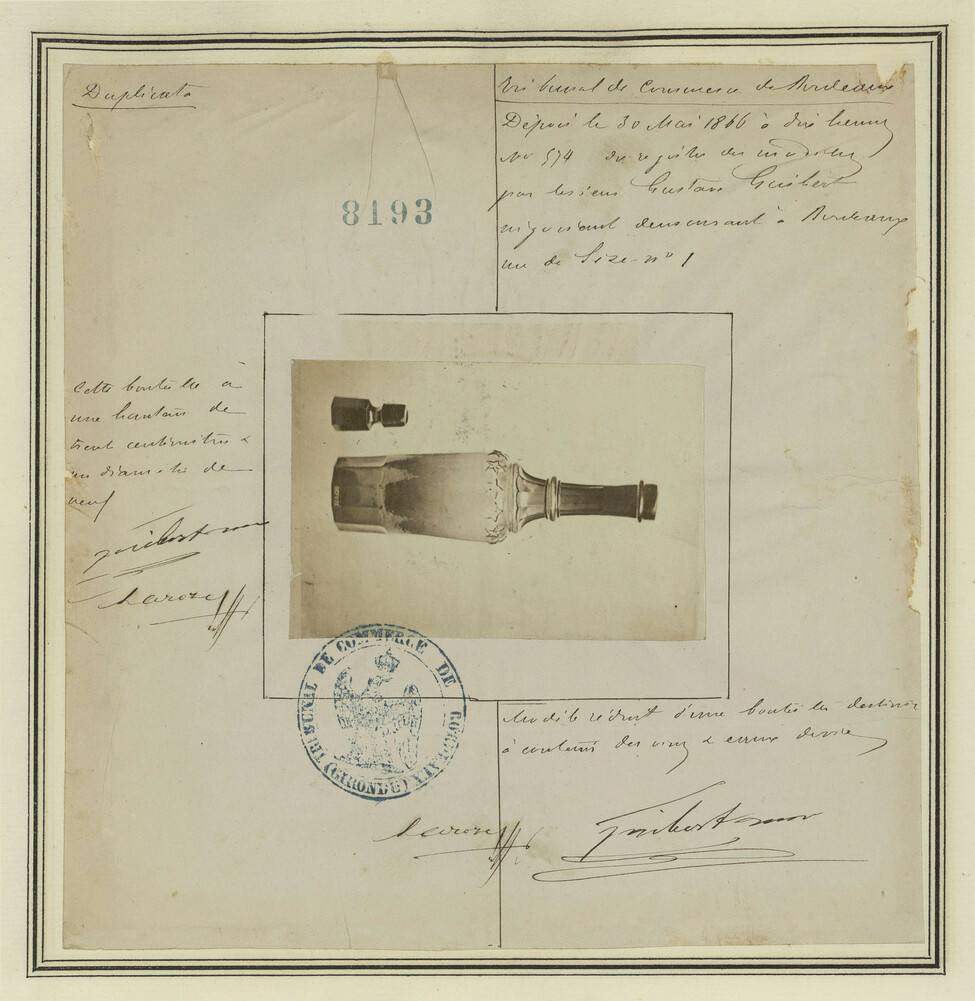 Duplicata
8193
Tribunal de Commerce de Bordeaux
Déposé le 30 Mai 1866 à dix heures
No 574 du registre des modèles
par le sieur Gustave Guibert
négociant demeurant à Bordeaux
rue de Sèze n° 1
Cette bouteille a
une hauteur de
trente centimètres &
un diamètre de
neuf
Guibert
Laroze
TRIBUNAL DE COMMERCE DE BORDEAUX
(GIRONDE)
Modèle réduit d'une bouteille destinée
à contenir des vins &
Laroze
Guibert